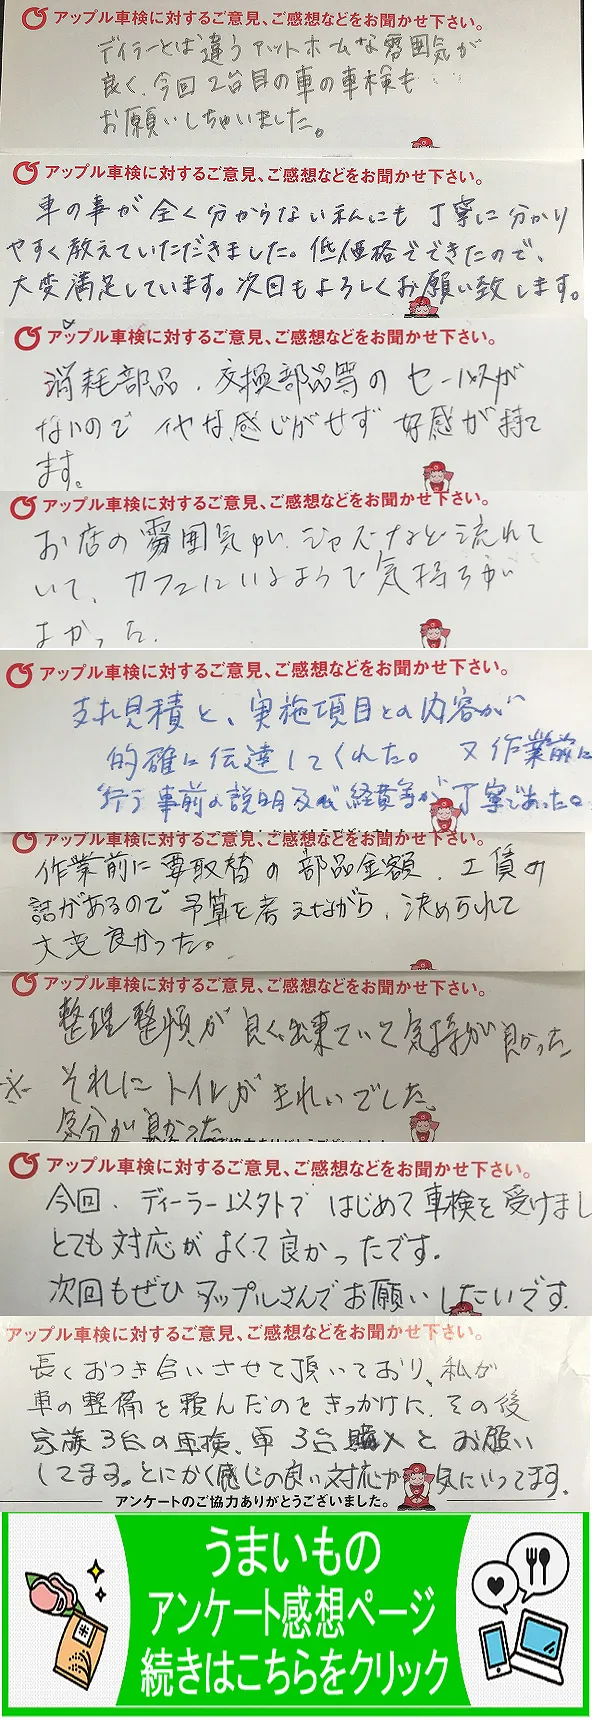 アップル車検に対するご意見、ご感想などをお聞かせ下さい。
ディーラーとは違うアットホームな雰囲気が
良く、今回2台目の車の車検も
お願いしちゃいました。
アップル車検に対するご意見、ご感想などをお聞かせ下さい。
車の事が全く分からない私にも丁寧に分かり
やすく教えていただきました。低価格でできたので、
大変満足しています。次回もよろしくお願い致します。
アップル車検に対するご意見、ご感想などをお聞かせ下さい。
消耗部品、交換部品等のセールスが
ないのでイヤな感じがせず好感が持て
ます。
アップル車検に対するご意見、ご感想などをお聞かせ下さい。
お店の雰囲気がいい、ジャズなど流れて
いて、カフェにいるようで気持ちがいい
よかった。
アップル車検に対するご意見、ご感想などをお聞かせ下さい。
支払見積と、実施項目との内容が
的確に伝達してくれた。又作業前に
行う事前の説明及び経費等が丁寧であった。
アップル車検に対するご意見、ご感想などをお聞かせ下さい。
作業前に要取替の部品金額、工賃の
話があるので予算を考えながら、決められて
大変良かった。
アップル車検に対するご意見、ご感想などをお聞かせ下さい。
整理整頓が良く出来ていて気持が良かった
それにトイレがきれいでした。
気分が良かった
アップル車検に対するご意見、ご感想などをお聞かせ下さい。
今回、ディーラー以外ではじめて車検を受けまし
とても対応がよくて良かったです。
次回もぜひアップルさんでお願いしたいです。
アップル車検に対するご意見、ご感想などをお聞かせ下さい。
長くおつき合いさせて頂いており、私が
車の整備を頼んだのをきっかけに、その後
家族3台の車検、車3台購入とお願い
してます。とにかく感じの良い対応が気にいってます。
アンケートのご協力ありがとうございました。
うまいもの
アンケート感想ページ
続きはこちらをクリック
米